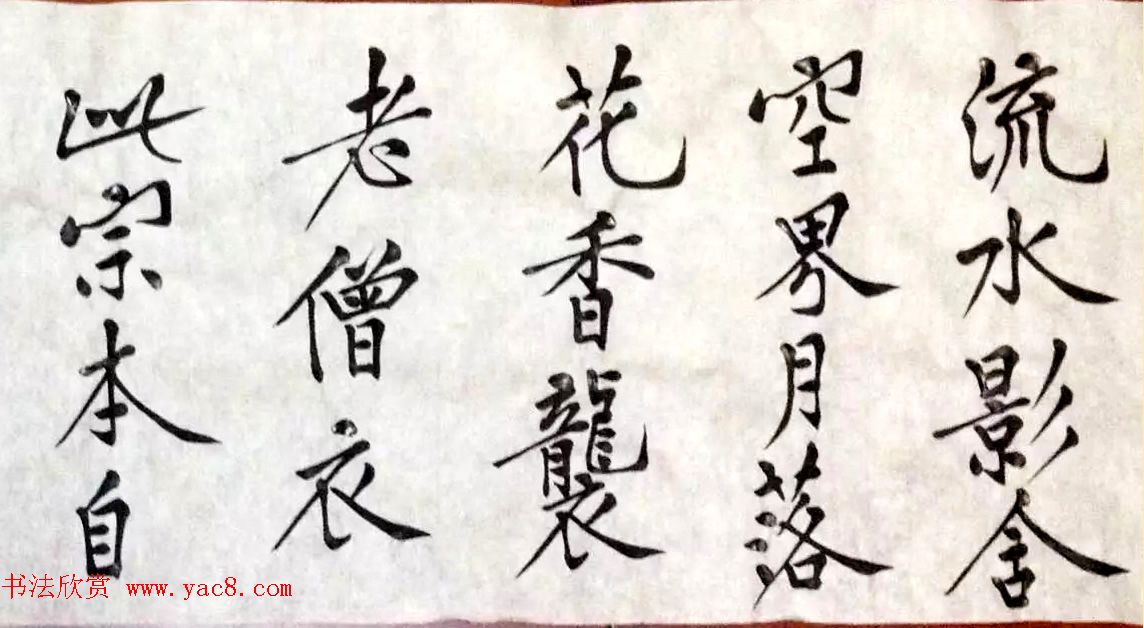 流水影含
空界月落
花香襲
老僧衣
此宗本自
书法欣赏 www.yac8.com